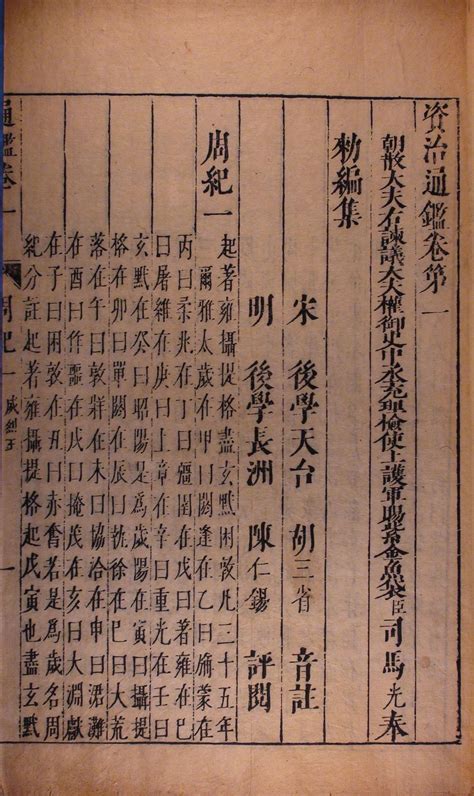 資治通鑑卷第一
朝散大夫右諫議大夫權御史中丞充理檢使上護軍賜紫金魚袋臣司馬光奉
勅編集
宋 後學天台 胡三省 音註
明 後學長洲 陳仁錫 評閱
周紀一
起著雍攝提格盡玄黓困敦凡三十五年
爾雅太歲在甲曰閼逢在乙曰旃蒙在
丙曰柔兆在丁曰彊圉在戊曰著雍在己
曰屠維在庚曰上章在辛曰重光在壬曰
玄黓在癸曰昭陽是爲歲陽在寅曰攝提
格在卯曰單閼在辰曰執徐在巳曰大荒
落在午曰敦牂在未曰協洽在申曰涒灘
在酉曰作噩在戌曰掩茂在亥曰大淵獻
在子曰困敦在丑曰赤奮若是爲歲名周
紀分註起著雍攝提格起戊寅也盡玄黓
通鑑卷一 周紀一 威烈王 一